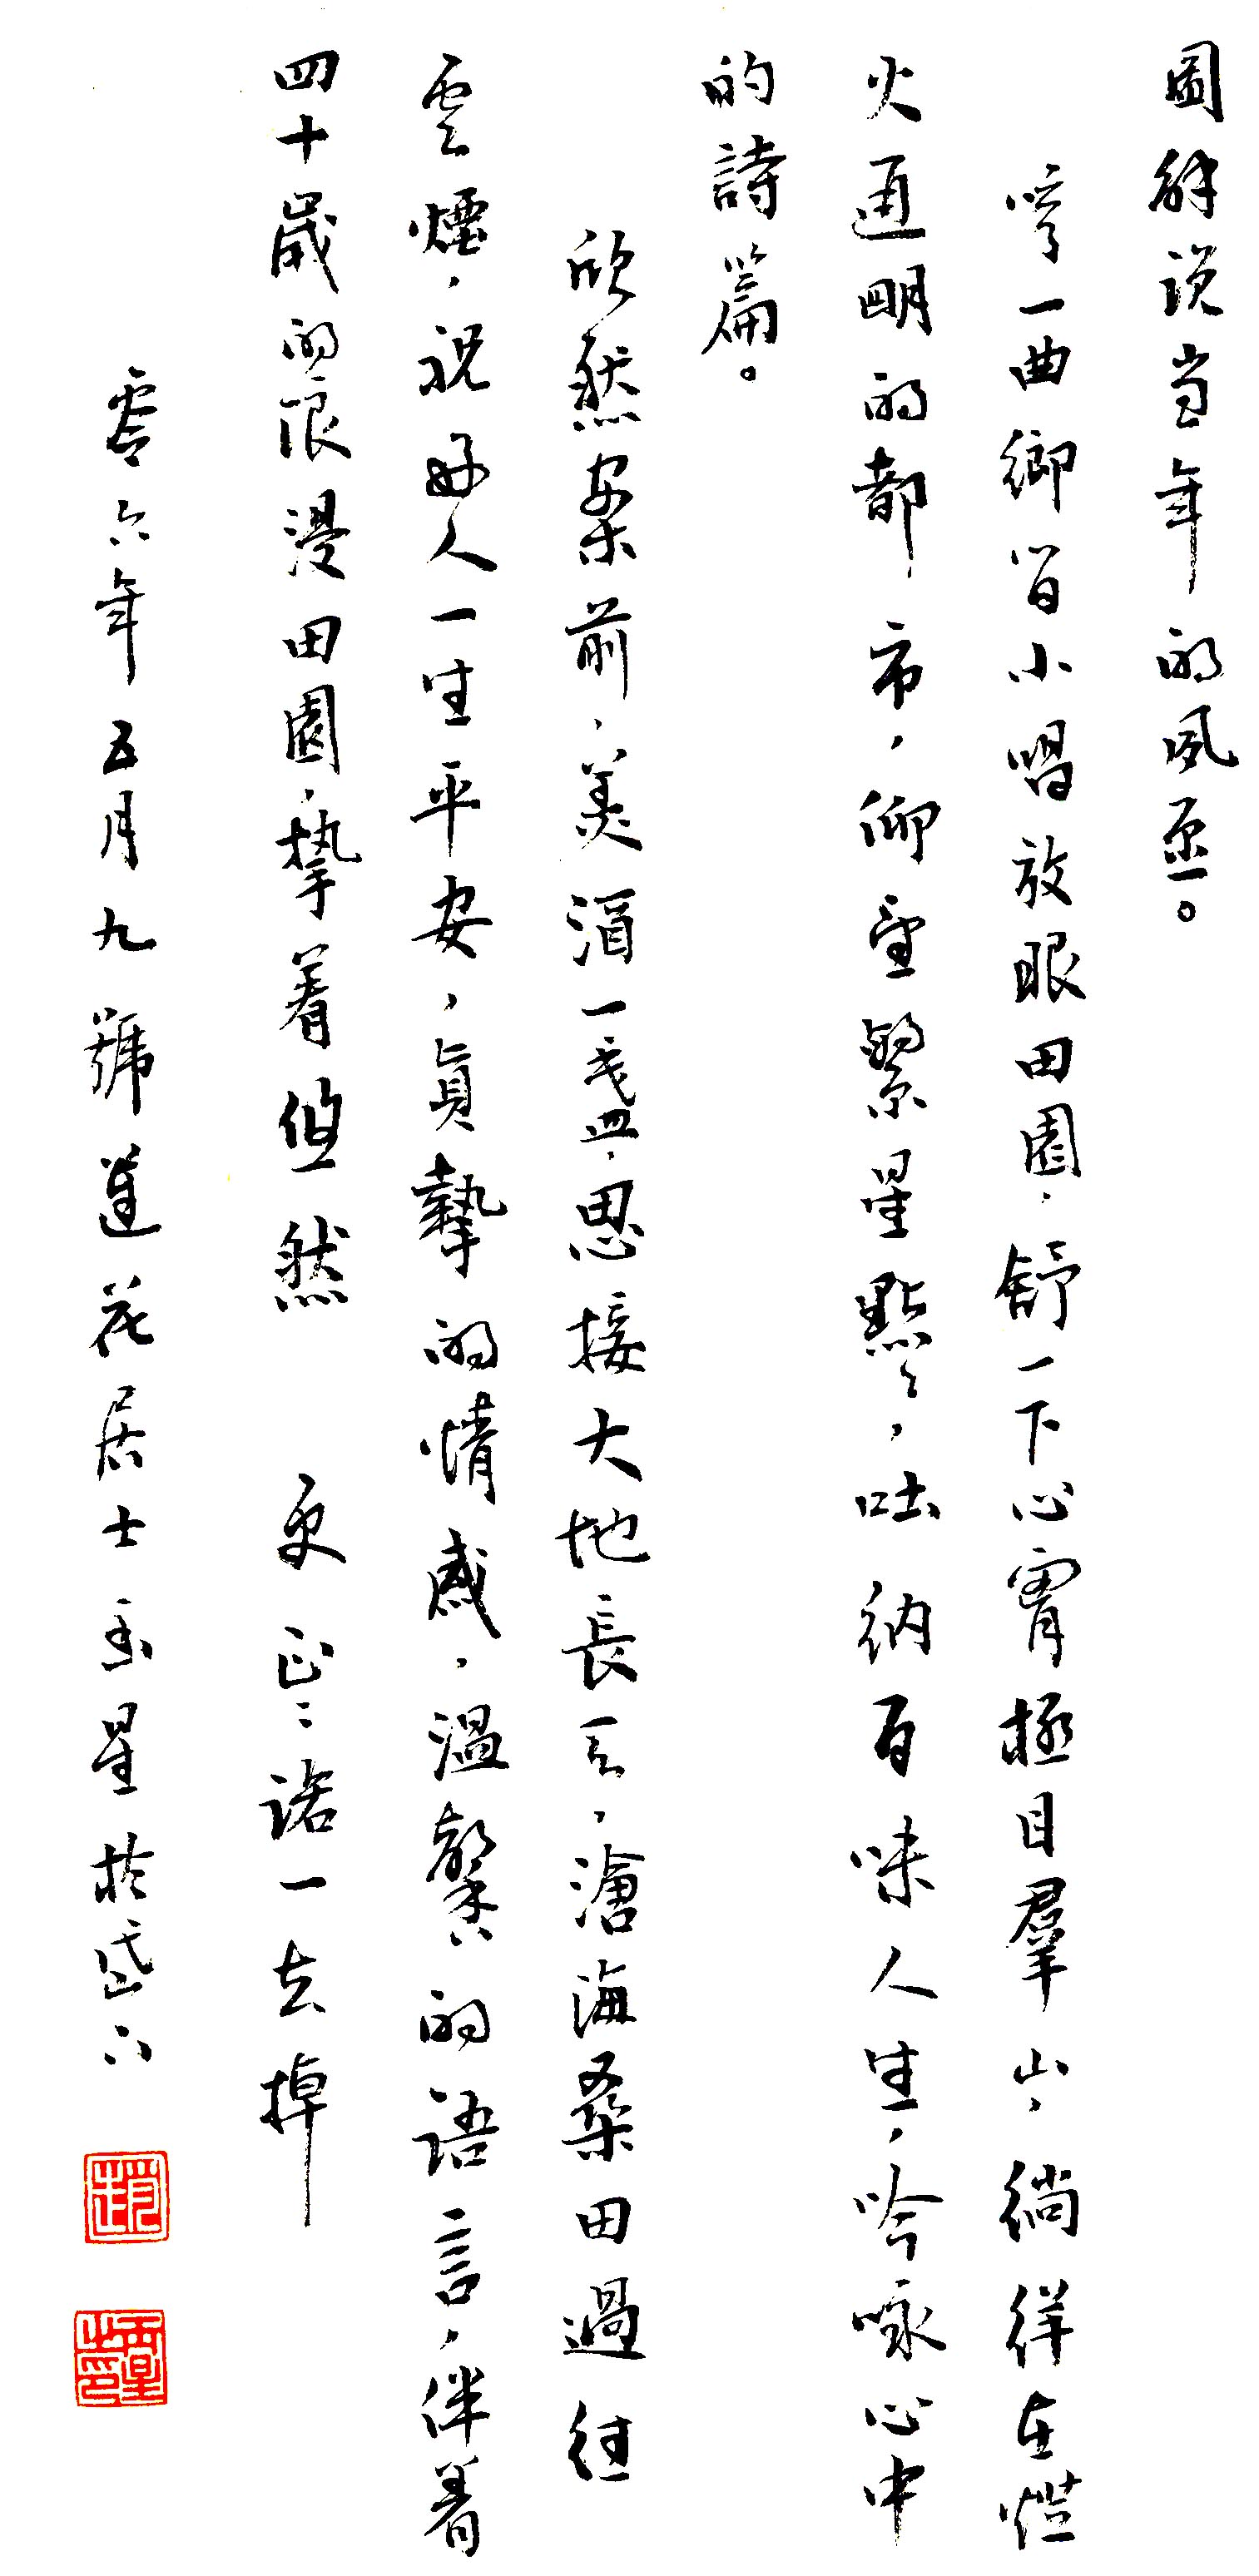 圖解说当年的风采一。
哼一曲鄉间小唱放眼田園，舒一下心胸極目羣山，徜徉在燈
火通明的都市，仰望繁星點點，吐納百味人生，吟咏心中
的詩篇。
欣然案前，美酒一盏，思接大地長天，滄海桑田過往
雲煙，祝好人一生平安，真摯的情感，温馨的語言，伴着
四十歲的浪漫田園，摯着悠然 更正：諾一去掉
零六年五月九號蓮花居士玉星於岱下